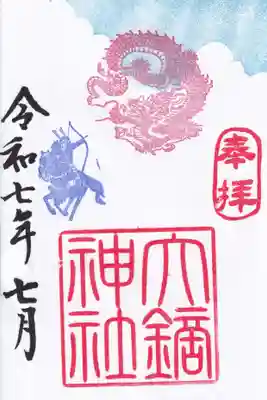 奉拝
大鏑
神社
令和七年 七月